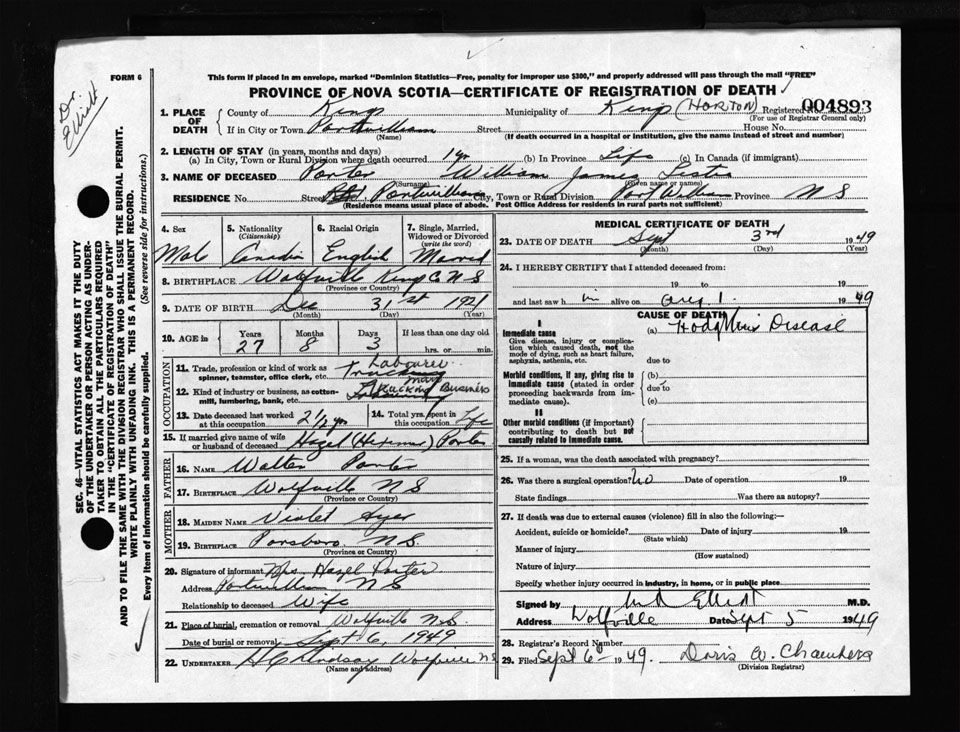 FORM 6
Dr. Elliott
This form if placed in an envelope, marked "Dominion Statistics—Free, penalty for improper use $300," and properly addressed will pass through the mail "FREE"
PROVINCE OF NOVA SCOTIA—CERTIFICATE OF REGISTRATION OF DEATH
1. PLACE OF DEATH County of Kings Municipality of Kings (HORTON) Registered No. 004893
(For use of Registrar General only)
If in City or Town Portwilliam Street House No.
(Name) (If death occurred in a hospital or institution, give the name instead of street and number)
2. LENGTH OF STAY (in years, months and days)
(a) In City, Town or Rural Division where death occurred 1 yr (b) In Province Life (c) In Canada (if immigrant)
3. NAME OF DECEASED Porter William James Lester
(Surname) (Given name or names)
RESIDENCE No. Street Portwilliams City, Town or Rural Division Port William Province N S
(Residence means usual place of abode. Post Office Address for residents in rural parts not sufficient)
4. Sex
Male
5. Nationality
(Citizenship)
Canadian
6. Racial Origin
English
7. Single, Married, Widowed or Divorced
(write the word)
Married
8. BIRTHPLACE Wolfville Kings Co N S
(Province or Country)
9. DATE OF BIRTH Dec 31st 1921
(Month) (Day) (Year)
10. AGE Years Months Days If less than one day old
27 8 3 hrs. or min.
OCCUPATION
11. Trade, profession or kind of work as spinner, teamster, office clerk, etc. Labourer
12. Kind of industry or business, as cotton-mill, lumbering, bank, etc. Trucking Business
13. Date deceased last worked at this occupation 2 1/2 yrs
14. Total yrs. spent in this occupation Life
15. If married give name of wife or husband of deceased Hazel Porter
FATHER
16. NAME Walter Porter
17. BIRTHPLACE Wolfville N S
(Province or Country)
MOTHER
18. MAIDEN NAME Violet Ayer
19. BIRTHPLACE Parsboro N.S.
(Province or Country)
20. Signature of informant Mrs. Hazel Porter
Address Portwilliam N S
Relationship to deceased Wife
21. Place of burial, cremation or removal Wolfville N.S.
Date of burial or removal Sept 6, 1949
22. UNDERTAKER H C Lindsay Wolfville N S
(Name and address)
MEDICAL CERTIFICATE OF DEATH
23. DATE OF DEATH Sept 3rd 1949
(Month) (Day) (Year)
24. I HEREBY CERTIFY that I attended deceased from:
19 to 19
and last saw h im alive on Aug 1. 1949
CAUSE OF DEATH
I
Immediate cause (a) Hodgkins Disease
Give disease, injury or complication which caused death, not the mode of dying, such as heart failure, asphyxia, asthenia, etc.
due to
Morbid conditions, if any, giving rise to immediate cause (stated in order proceeding backwards from immediate cause).
(b)
due to
(c)
II
Other morbid conditions (if important) contributing to death but not causally related to immediate cause.
25. If a woman, was the death associated with pregnancy?
26. Was there a surgical operation? no Date of operation 19
State findings Was there an autopsy?
27. If death was due to external causes (violence) fill in also the following:—
Accident, suicide or homicide? Date of injury 19
(State which)
Manner of injury
(How sustained)
Nature of injury
Specify whether injury occurred in industry, in home, or in public place
Signed by Elliott M.D.
Address Wolfville Date Sept 5 1949
28. Registrar's Record Number
29. Filed Sept 6th 1949. Doris A. Chambers
(Division Registrar)
SEC. 46—VITAL STATISTICS ACT MAKES IT THE DUTY
OF THE UNDERTAKER OR PERSON ACTING AS UNDER-
TAKER TO OBTAIN ALL THE PARTICULARS REQUIRED
IN THE "CERTIFICATE OF REGISTRATION OF DEATH"
AND TO FILE THE SAME WITH THE DIVISION REGISTRAR WHO SHALL ISSUE THE BURIAL PERMIT.
WRITE PLAINLY WITH UNFADING INK. THIS IS A PERMANENT RECORD.
Every item of information should be carefully supplied. (See reverse side for instructions.)